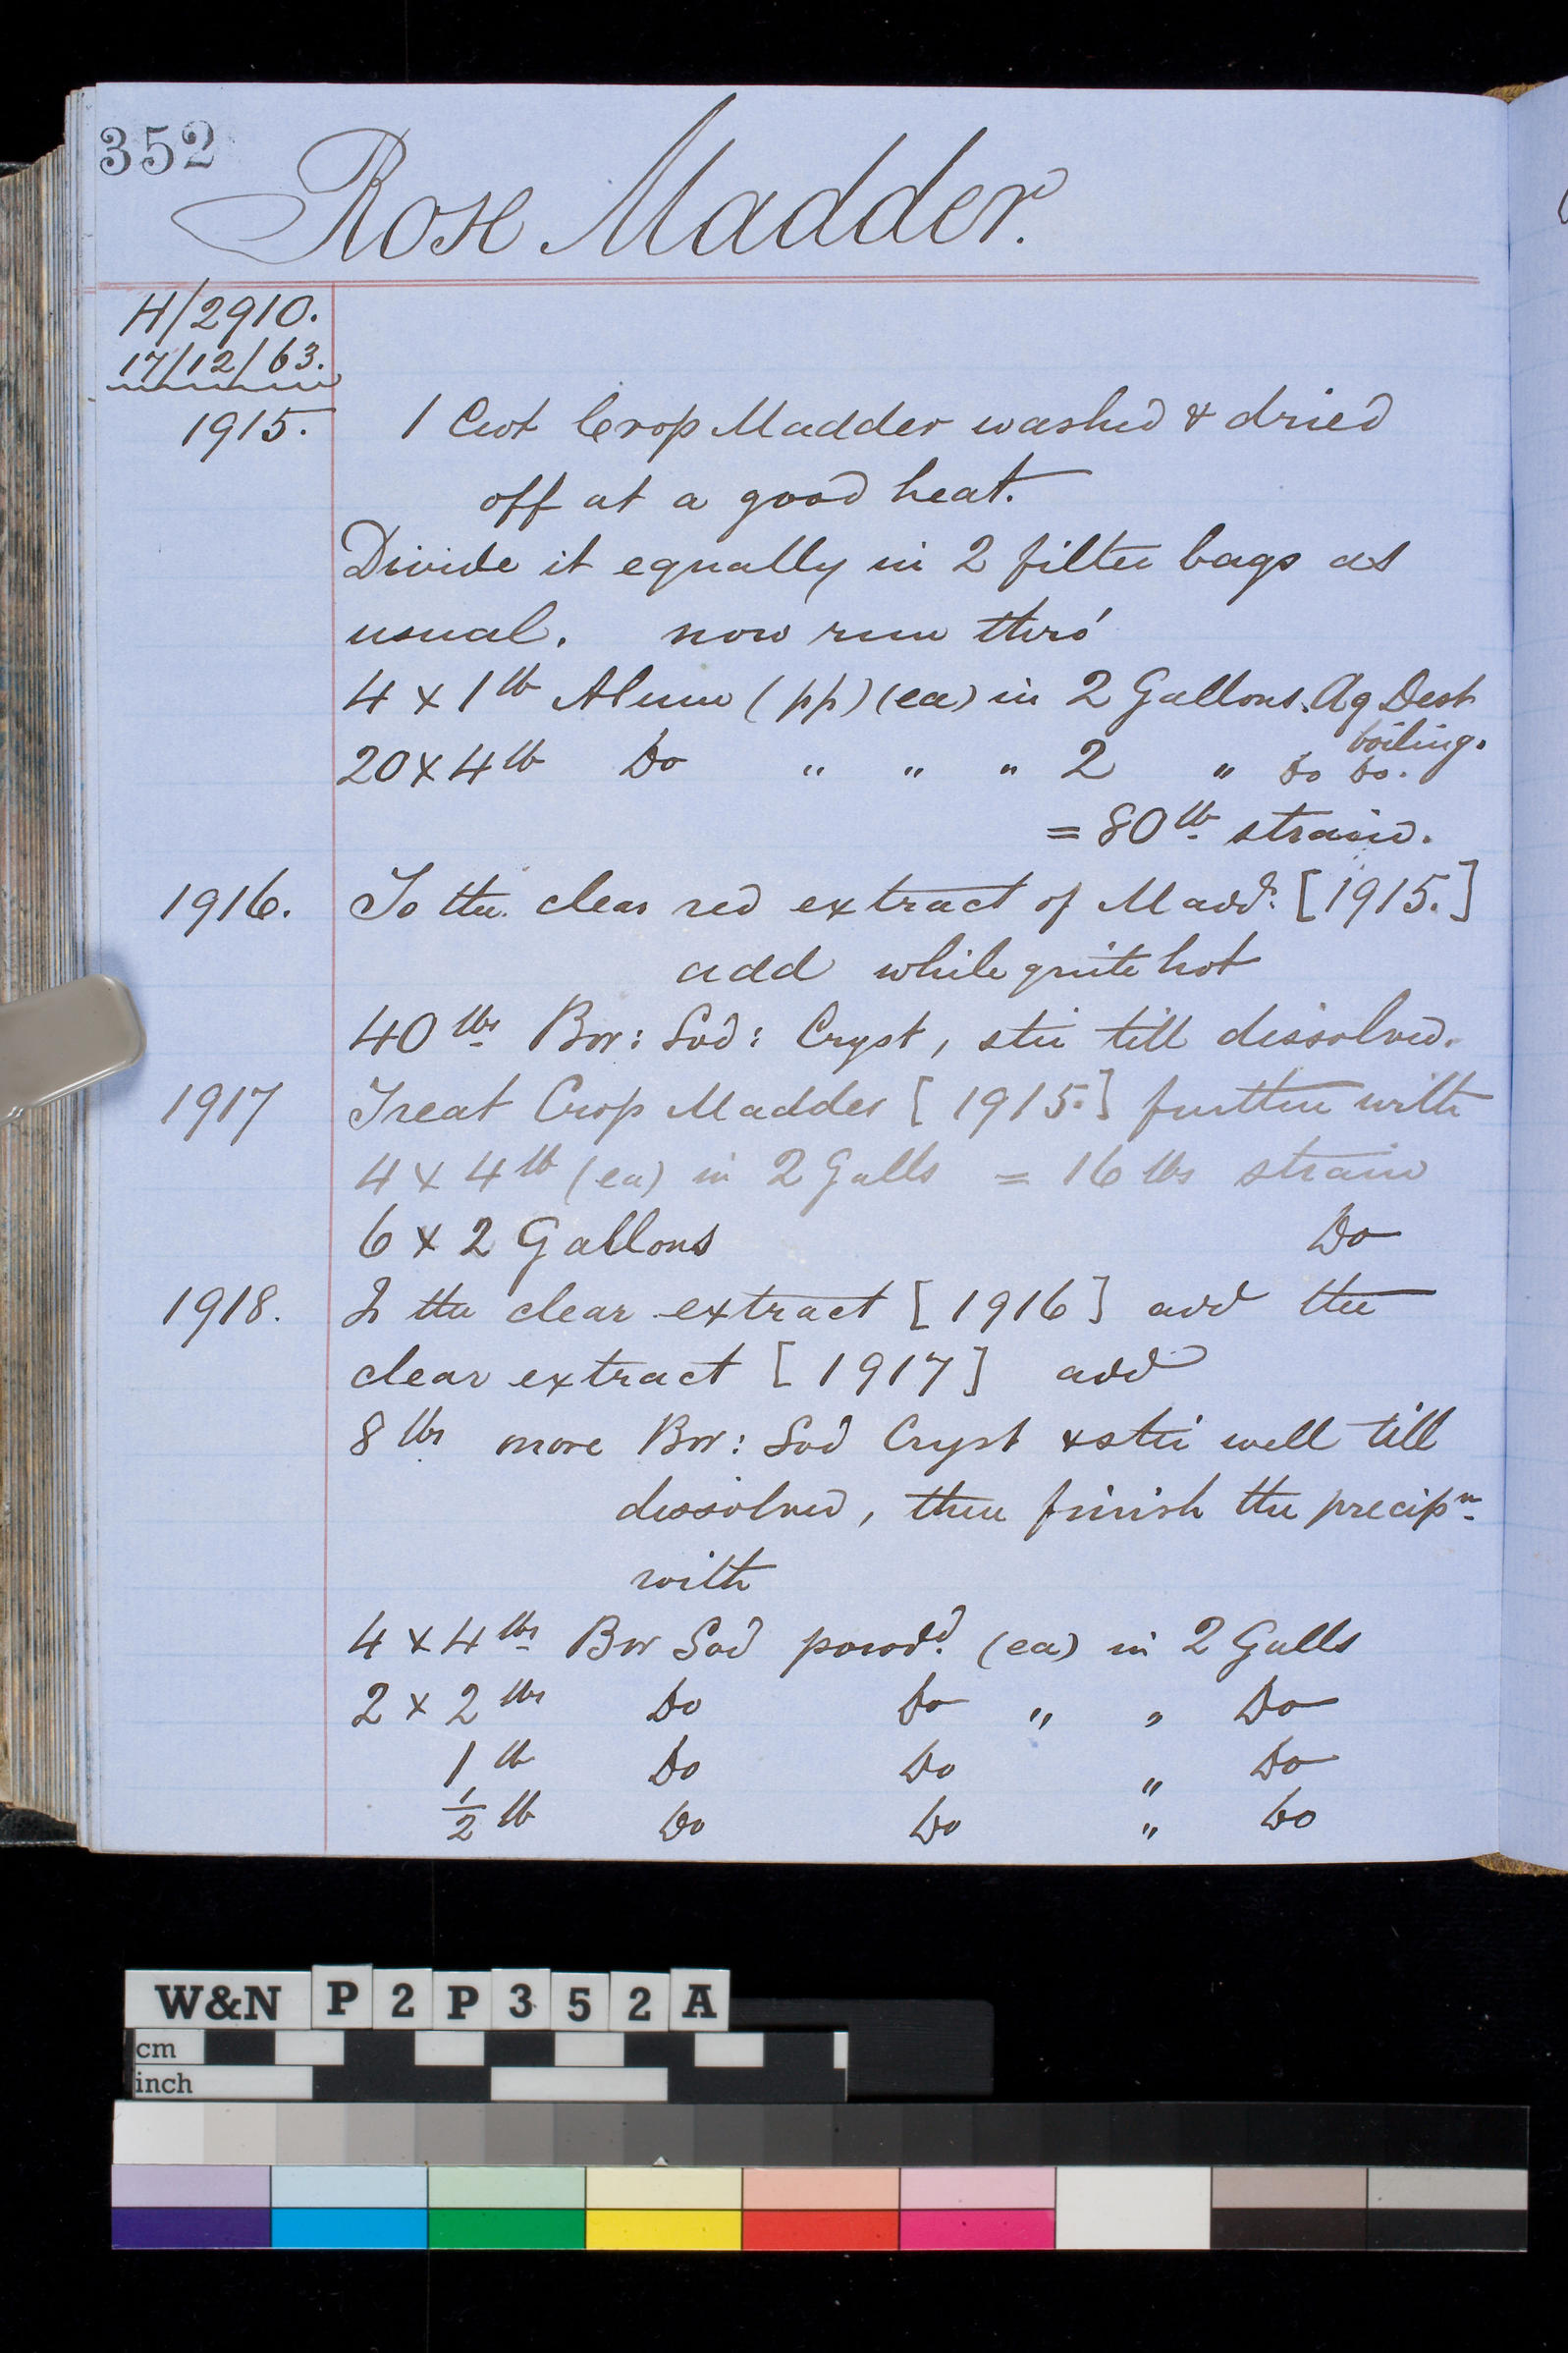 352
Rose Madder.
H/2910.
17/12/63.
1915. 1 Cwt Crop Madder washed & dried
off at a good heat.
Divide it equally in 2 filter bags as
usual. now run thro'
4 x 1 lb Alum (pp) (ea) in 2 Gallons. Aq Dest
boiling.
20 x 4 lb Do " " " 2 " Do Do.
= 80 lb strain.
1916. To the clear red extract of Madd: [1915.]
add while quite hot
40 lbs Bor: Sod: Cryst, stir till dissolved.
1917 Treat Crop Madder [1915.] further with
4 x 4 lb (ea) in 2 Galls = 16 lbs strain
6 x 2 Gallons Do
1918. To the clear extract [1916] add the
clear extract [1917] add
8 lbs more Bor: Sod Cryst & stir well till
dissolved, then finish the precipn
with
4 x 4 lbs Bor Sod powdd. (ea) in 2 Galls
2 x 2 lbs Do Do " , Do
1 lb Do Do " Do
1/2 lb Do Do " Do
W&N P2P352A
cm
inch